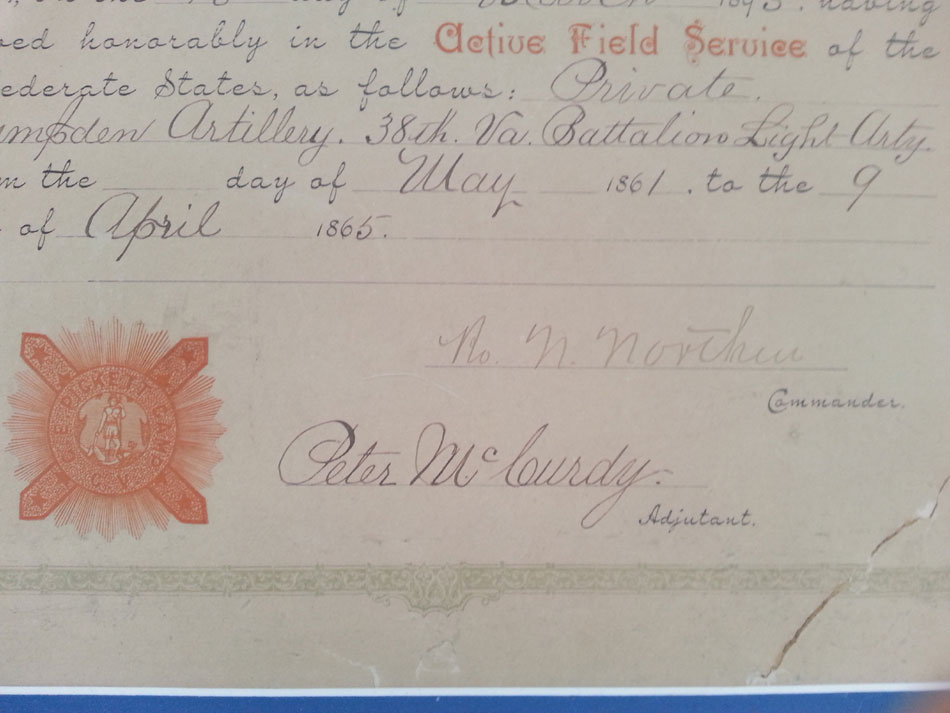 day of 1893. having
ved honorably in the Active Field Service of the
ederate States, as follows: Private.
mpden Artillery. 38th. Va. Battalion Light Arty.
m the day of May 1861. to the 9
of April 1865.
Ro. N. Northen
Commander.
GEO. E. PICKETT CAMP
C. V.
Peter McCurdy.
Adjutant.